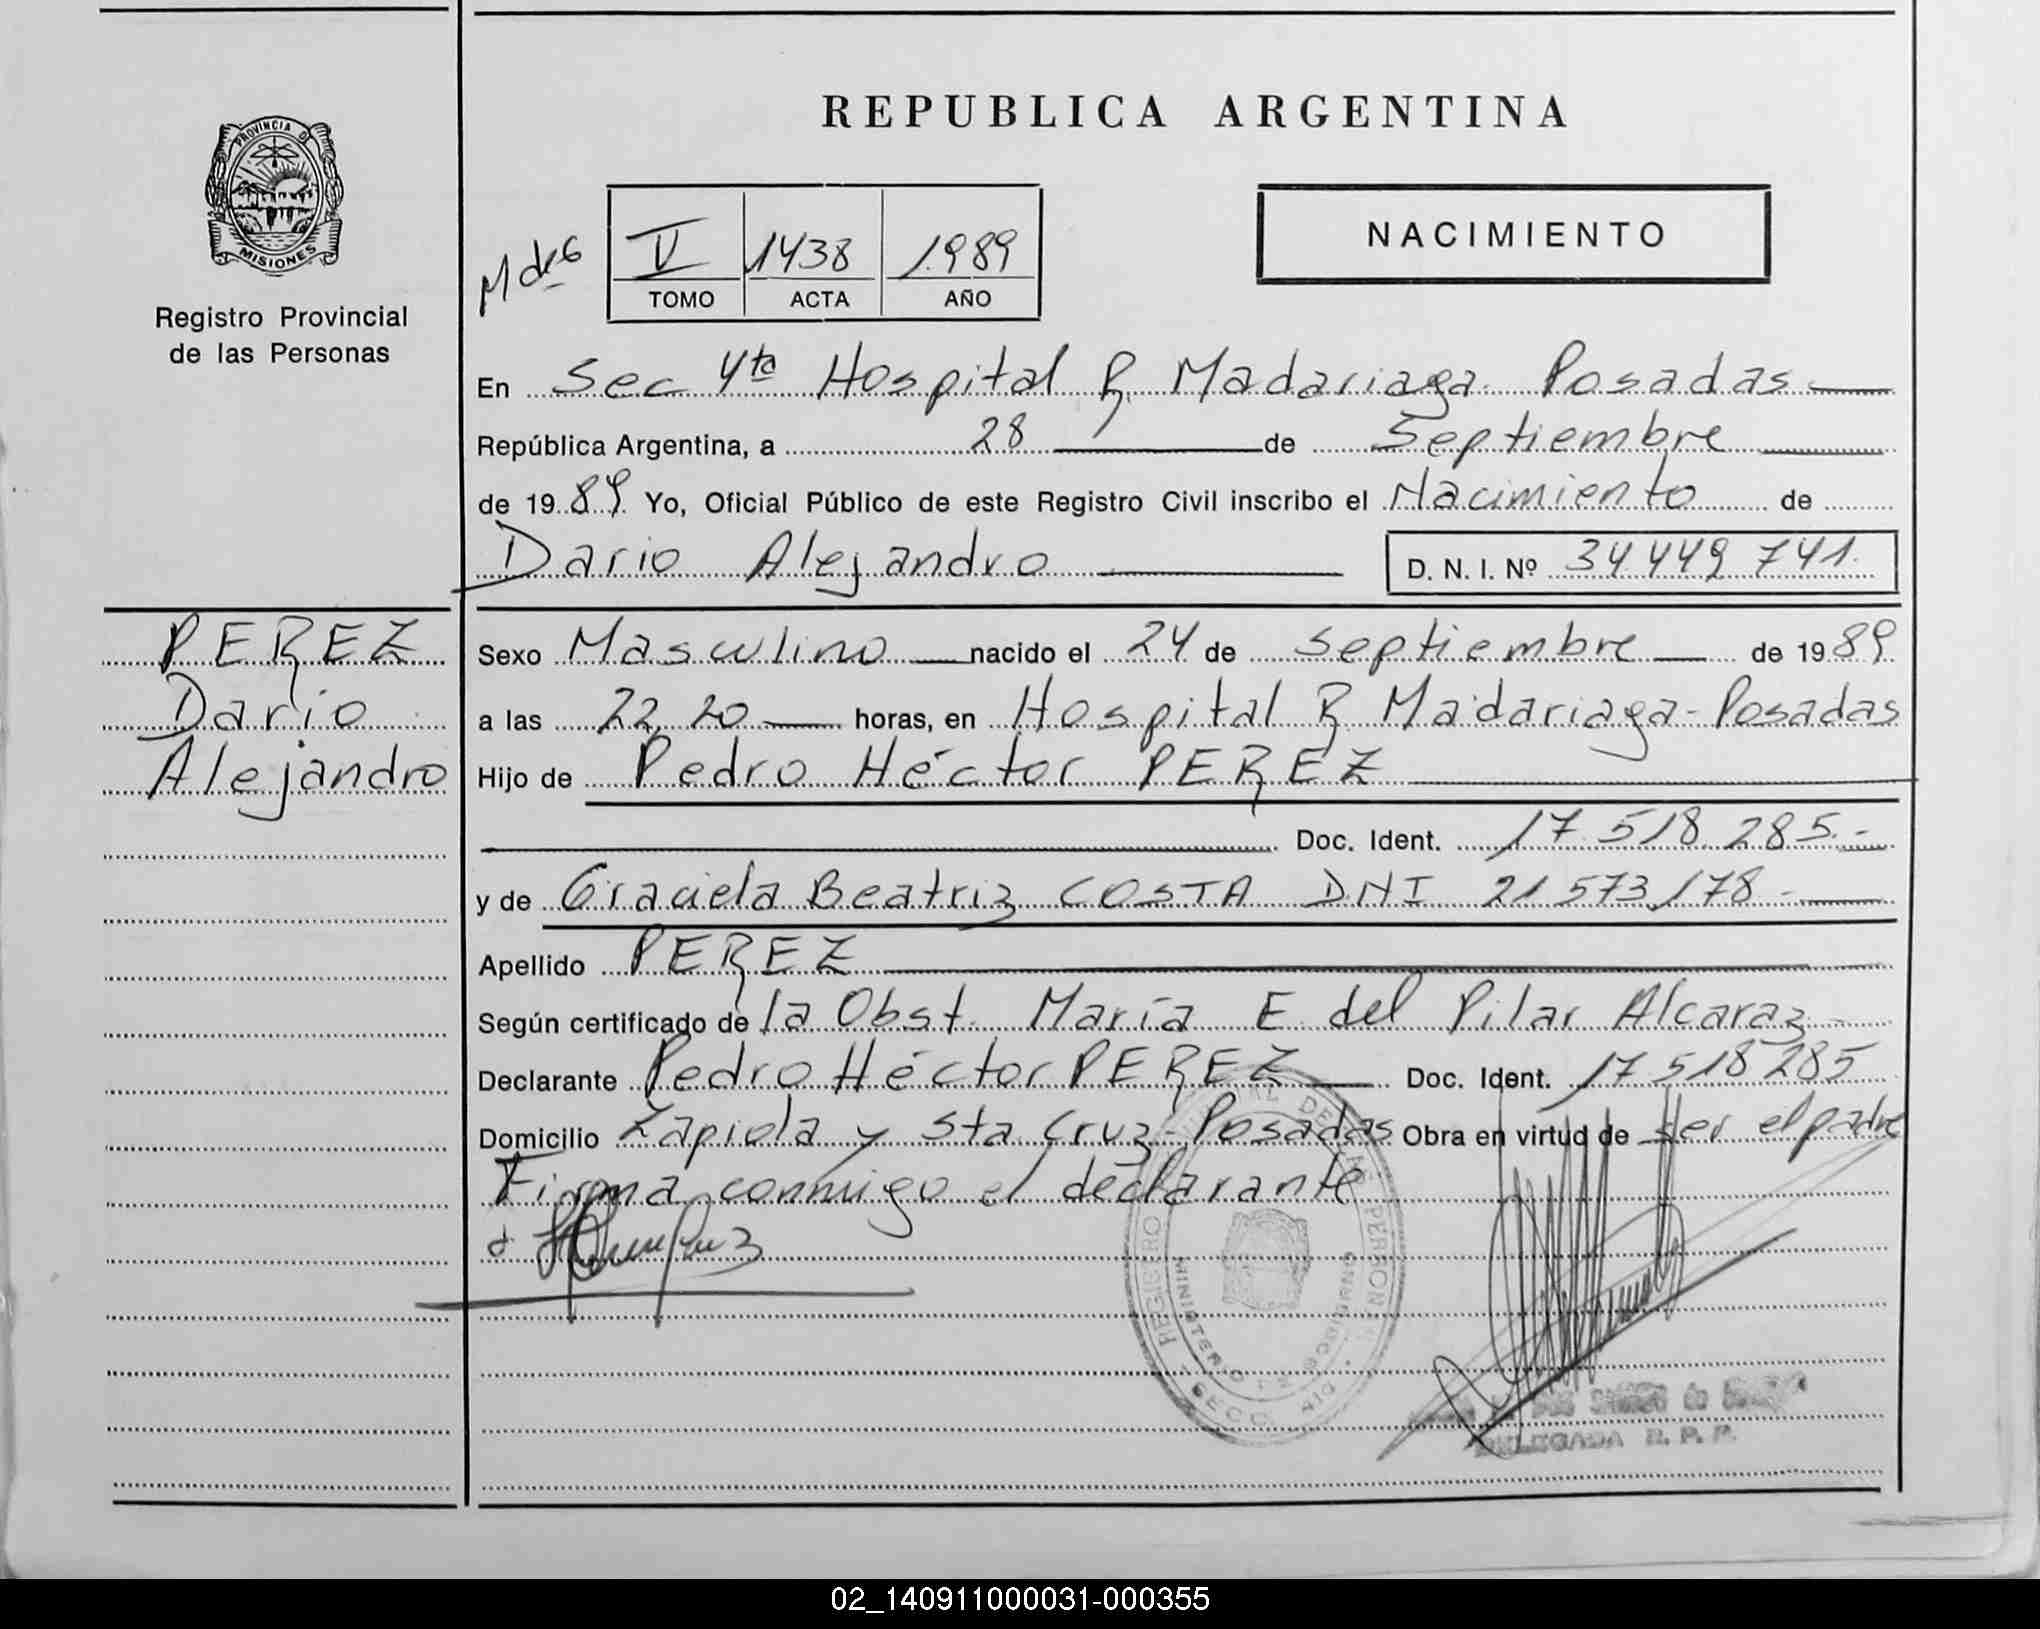 REPUBLICA ARGENTINA
PROVINCIA DE
MISIONES
Registro Provincial
de las Personas
NACIMIENTO
V 1438 1989
TOMO ACTA AÑO
En Sec 4ta Hospital R. Madariaga Posadas
República Argentina, a 28 de Septiembre
de 1989 Yo, Oficial Público de este Registro Civil inscribo el Nacimiento de
Dario Alejandro D. N. I. Nº 34 449 741.
PEREZ
Dario
Alejandro
Sexo Masculino nacido el 24 de Septiembre de 1989
a las 22,20 horas, en Hospital R Madariaga - Posadas
Hijo de Pedro Héctor PEREZ
Doc. Ident. 17.518.285.-
y de Graciela Beatriz COSTA DNI 21 573,178 -
Apellido PEREZ
Según certificado de la Obst. María E. del Pilar Alcaraz
Declarante Pedro Héctor PEREZ Doc. Ident. 17 518 285
Domicilio Zapiola y Sta Cruz - Posadas Obra en virtud de ser el padre
Firma conmigo el declarante
REGISTRO PROVINCIAL DE LAS PERSONAS
MINISTERIO DE GOBIERNO
SECC. 4ta
DELEGADA R. P. P.
02_140911000031-000355